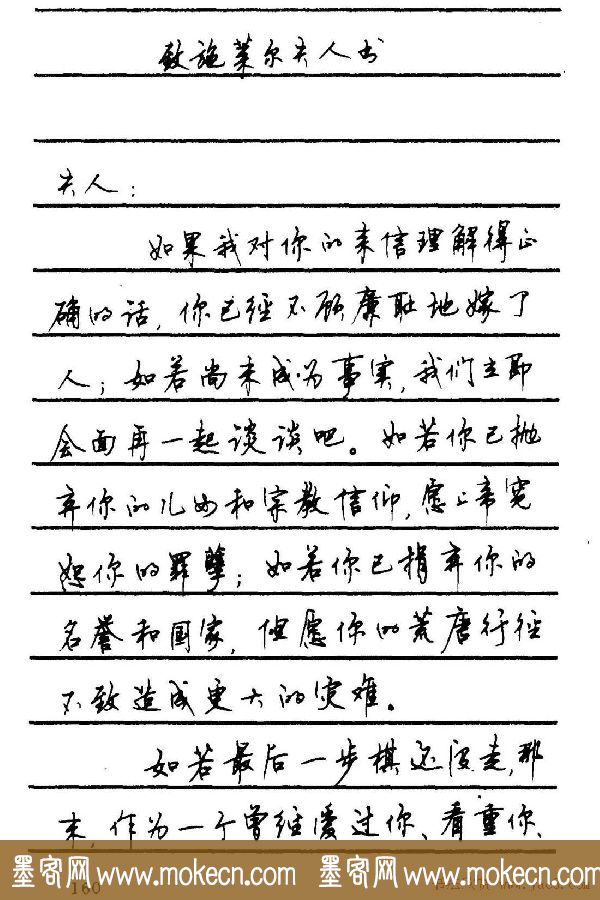 致施莱尔夫人书
夫人：
如果我对你的来信理解得正
确的话，你已经不顾廉耻地嫁了
人；如若尚未成为事实，我们立即
会面再一起谈谈吧。如若你已抛
弃你的儿女和宗教信仰，愿上帝宽
恕你的罪孽；如若你已捐弃你的
名誉和国家，但愿你的荒唐行径
不致造成更大的灾难。
如若最后一步棋还没走，那
末，作为一个曾经爱过你、看重你、
墨客网 www.mokecn.com 墨客网 www.mokecn.com
160